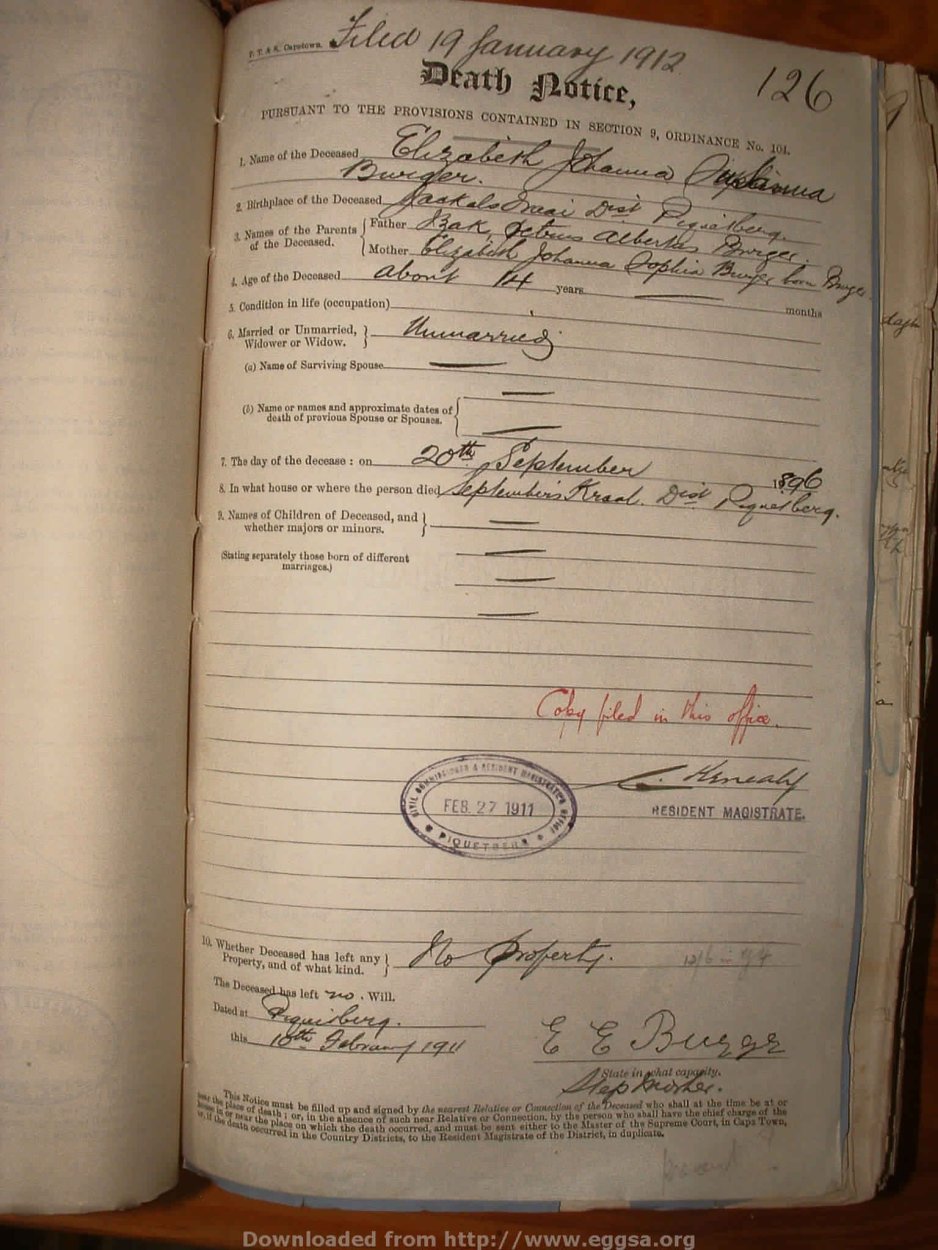 T. & S. Capetown. Filed 19 January 1912
Death Notice, 126
PURSUANT TO THE PROVISIONS CONTAINED IN SECTION 9, ORDINANCE No. 104.
1. Name of the Deceased Elizabeth Johanna
Burger.
2. Birthplace of the Deceased Dist Piquetberg.
3. Names of the Parents of the Deceased. Father Izak Petrus Albertus Burger.
Mother Elizabeth Johanna Sophia Burger born Burger.
4. Age of the Deceased about 14 years — months days
5. Condition in life (occupation)
6. Married or Unmarried, Widower or Widow. Unmarried
(a) Name of Surviving Spouse —
(b) Name or names and approximate dates of death of previous Spouse or Spouses. —
—
7. The day of the decease: on 20th September 1896
8. In what house or where the person died Septembers Kraal. Dist Piquetberg.
9. Names of Children of Deceased, and whether majors or minors. —
(Stating separately those born of different marriages.) —
—
—
Copy filed in this office.
RESIDENT MAGISTRATE.
CIVIL COMMISSIONER & RESIDENT MAGISTRATES OFFICE
FEB. 27 1911
PIQUETBERG
10. Whether Deceased has left any Property, and of what kind. No property.
The Deceased has left no. Will.
Dated at Piquetberg.
this 10th February 1911
E E Burger
State in what capacity.
Step Mother.
This Notice must be filled up and signed by the nearest Relative or Connection of the Deceased who shall at the time be at or
near the place of death; or, in the absence of such near Relative or Connection, by the person who shall have the chief charge of the
house in or near the place on which the death occurred, and must be sent either to the Master of the Supreme Court, in Cape Town,
or, if the death occurred in the Country Districts, to the Resident Magistrate of the District, in duplicate.
Downloaded from http://www.eggsa.org